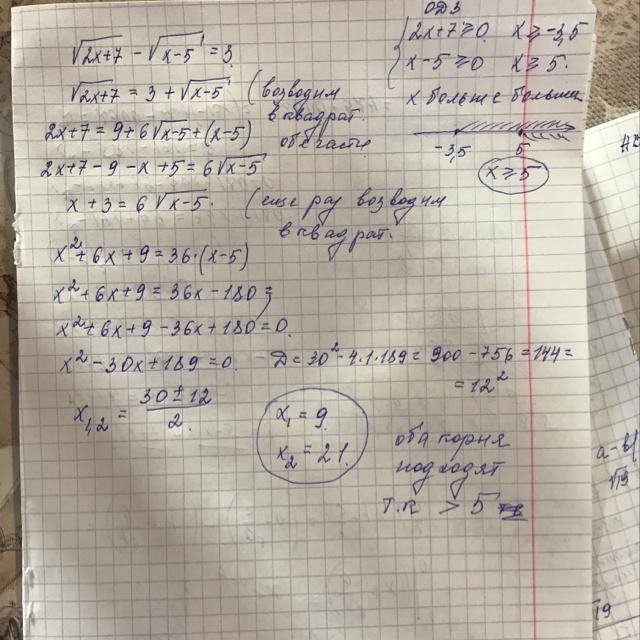 √2x+7 - √x-5 = 3.
√2x+7 = 3 + √x-5 (возводим
в квадрат.
2x+7 = 9+6√x-5+(x-5) обе части
2x+7-9-x+5=6√x-5
x+3=6√x-5. (еще раз возводим
в квадрат.
x²+6x+9=36·(x-5)
x²+6x+9=36x-180
x²+6x+9-36x+180=0.
x²-30x+189=0. D=30²-4·1·189=900-756=144=
=12²
x₁,₂ = 30±12 / 2.
x₁=9.
x₂=21.
оба корня
подходят
т.к > 5
ОДЗ
2x+7≥0 x≥-3,5
x-5≥0 x≥5.
x больше больше
-3,5 5
x≥5
а-в
√19
19